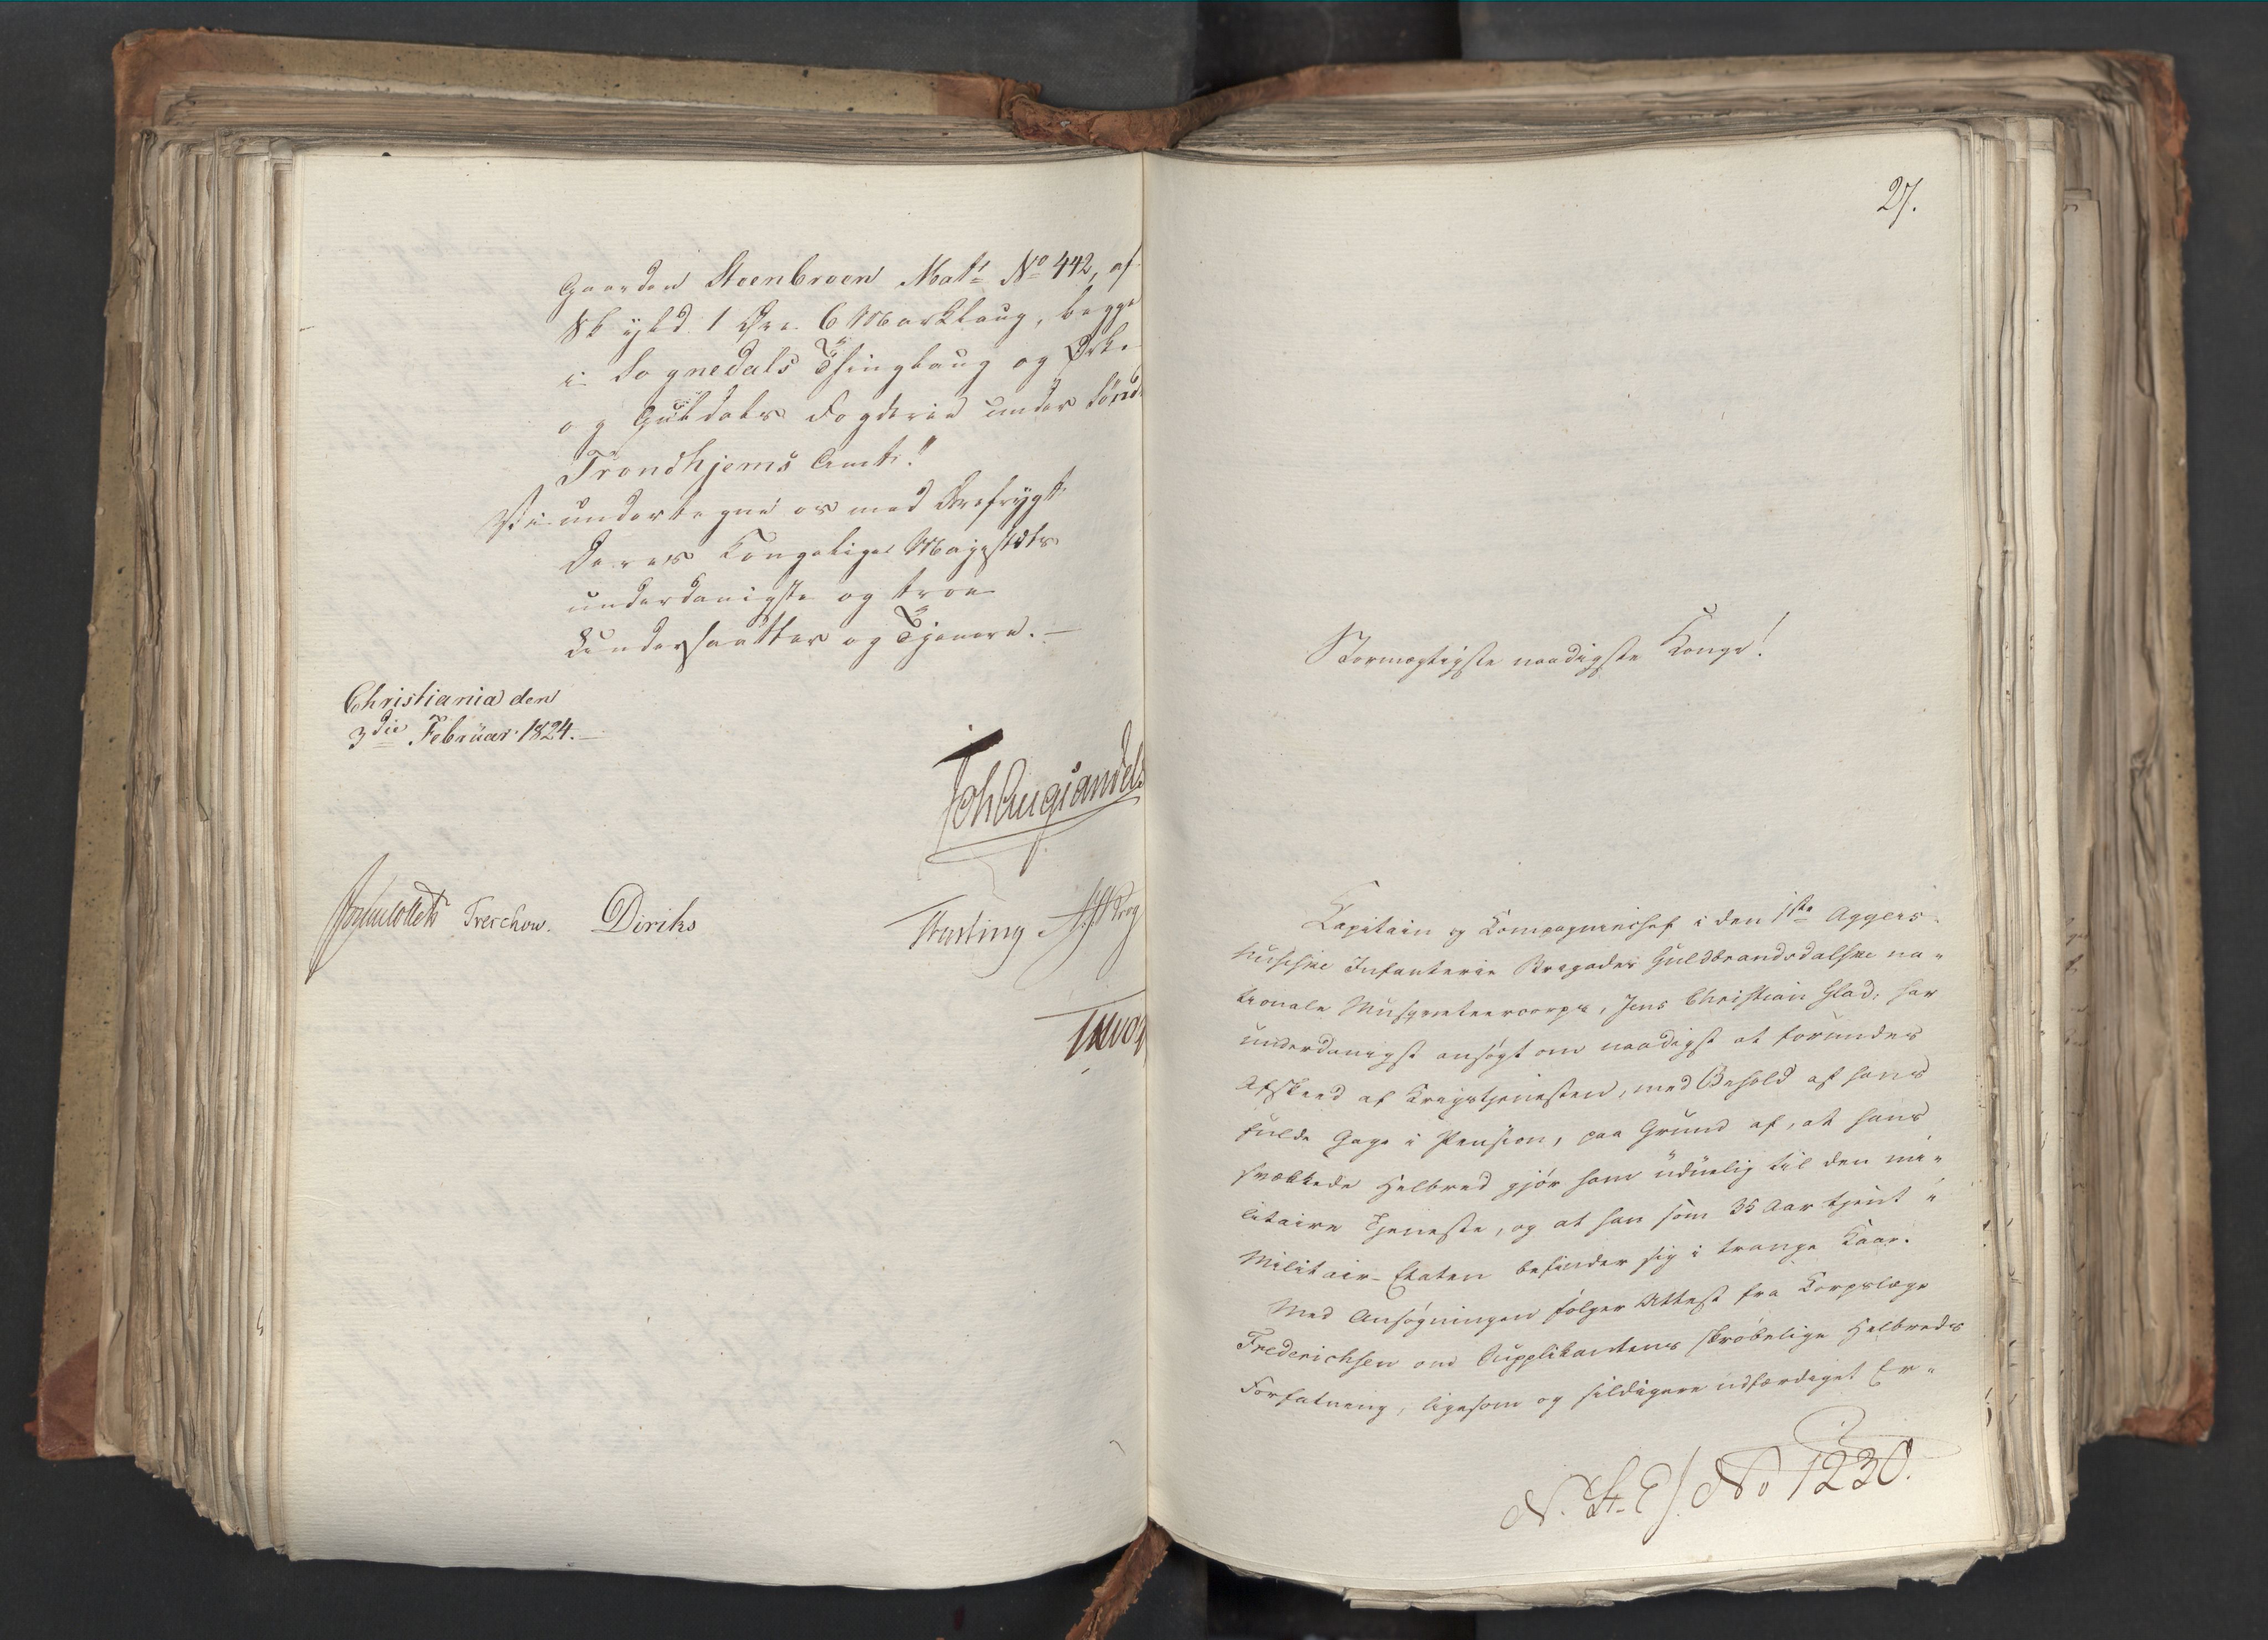 Gaarden Steenbroen Matr. No 442, af
Skyld 1 Øre 6 Marklaug, begge
i Sognedals Thinglaug og Orke
og Guldals Fogderie under Sønd
Trondhjems Amt."
Vi undertegne os med Ærefrygt
Deres Kongelige Majestæts
underdanigste og troe
Undersaatter og Tjenere.—
Christiania den
3die Februar 1824.—
Joh Aug Sandels
Jonas Collett Treschow. Diriks
Motzfeldt
Fasting
27.
Stormægtigste naadigste Konge!
Kapitain og Kompagniechef i den 1ste Aggers-
huusiske Infanterie Brigades Guldbrandsdalske na-
tionale Musqueteercorps, Jens Christian Glad, har
underdanigst ansøgt om naadigst at forundes
Afskeed af Krigstjenesten, med Behold af hans
fulde Gage i Pension, paa Grund af, at hans
svækkede Helbred gjør ham uduelig til den mi-
litaire Tjeneste, og at han som 35 Aar tjent i
Militair-Etaten befinder sig i trange Kaar.
Med Ansøgningen følger Attest fra Korpslæge
Frederichsen om Supplikantens skrøbelige Helbreds
Forfatning, ligesom og sildigere udfærdiget Er-
N. St. E/. No 1230.